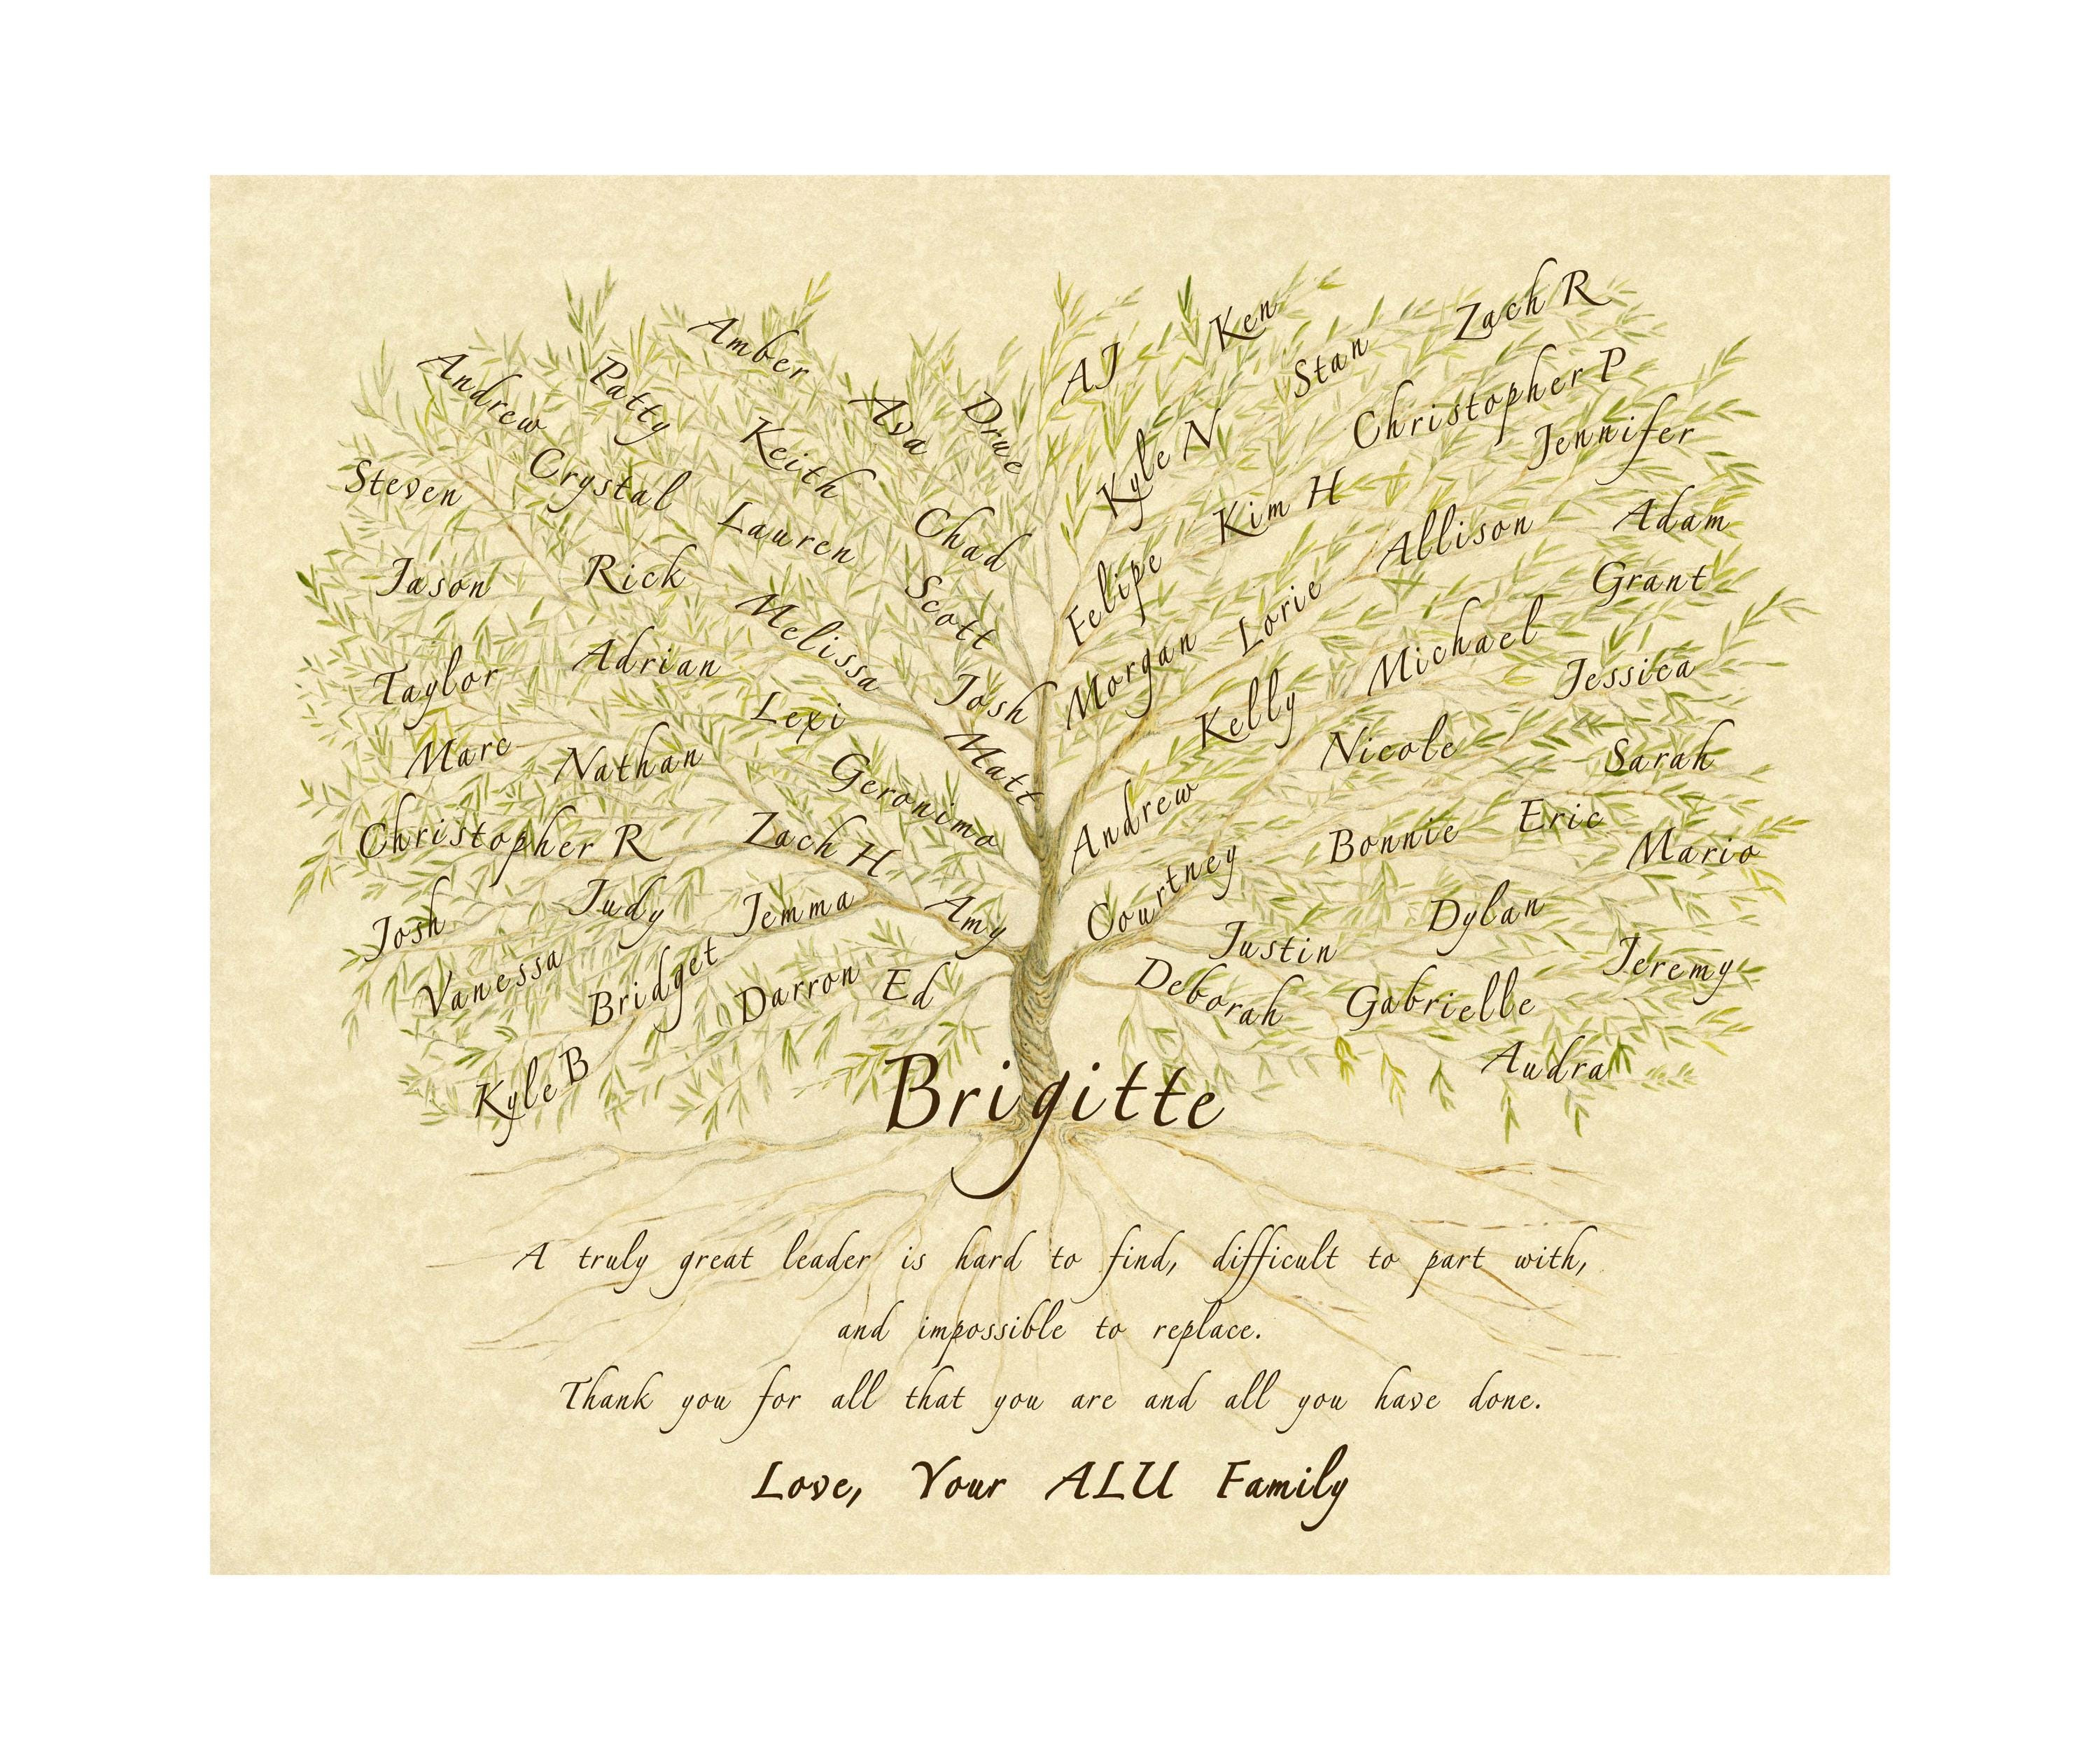 Zach R
Ken
Amber
AJ
Stan
Andrew
Patty
Ava
Drue
Christopher P
Jennifer
Keith
Kyle N
Steven
Crystal
Lauren
Chad
Kim H
Allison
Adam
Jason
Rick
Scott
Felipe
Lorie
Grant
Melissa
Morgan
Michael
Taylor
Adrian
Josh
Kelly
Jessica
Lexi
Marc
Nathan
Matt
Nicole
Sarah
Geronimo
Andrew
Eric
Christopher R
Zach H
Bonnie
Mario
Josh
Judy
Jemma
Amy
Courtney
Dylan
Vanessa
Bridget
Darron
Ed
Justin
Jeremy
Deborah
Gabrielle
Kyle B
Audra
Brigitte
A truly great leader is hard to find, difficult to part with,
and impossible to replace.
Thank you for all that you are and all you have done.
Love, Your ALU Family